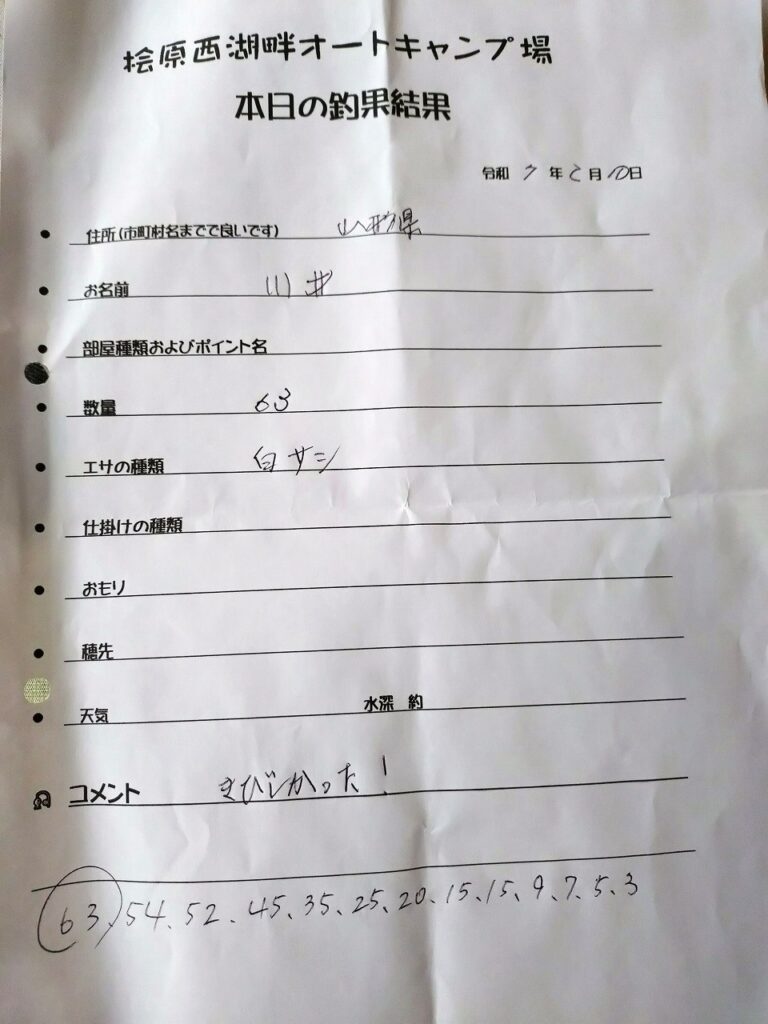 桧原西湖畔オートキャンプ場
本日の釣果結果
令和 7 年 2 月 10日
住所(市町村名までで良いです) 山形県
お名前 川井
部屋種類およびポイント名
数量 63
エサの種類 白サシ
仕掛けの種類
おもり
穂先
天気 水深 約
コメント きびしかった!
63、54、52、45、35、25、20、15、15、9、7、5、3